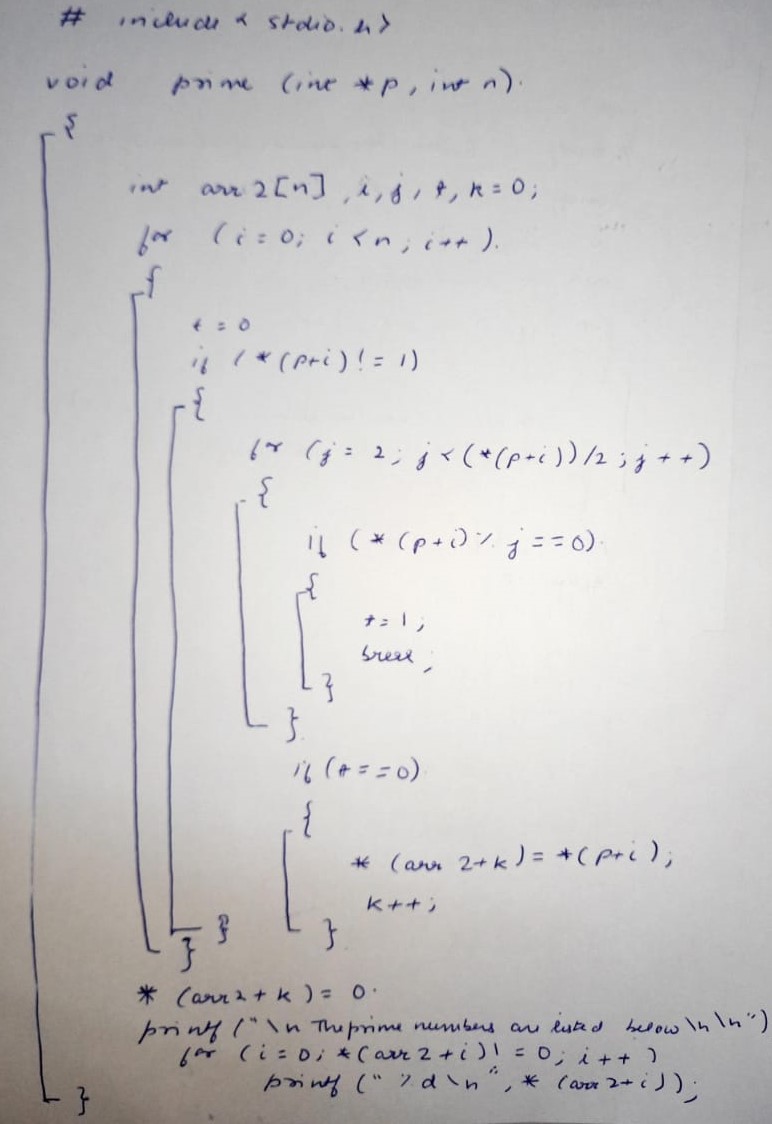 # include < stdio.h>
void prime (int *p, int n).
{
int arr2[n], i, j, t, k = 0;
for (i = 0; i < n; i++).
{
t = 0
if (*(p+i) != 1)
{
for (j = 2; j < (*(p+i))/2; j++)
{
if (*(p+i) % j == 0).
{
t = 1;
break;
}
}.
if (t == 0)
{
* (arr 2+k) = *(p+i);
k++;
}
}
}
* (arr2+k) = 0.
printf ("\n The prime numbers are listed below \n \n")
for (i = 0; *(arr2+i)! = 0; i++)
printf (" %d \n", * (arr2+i));
}